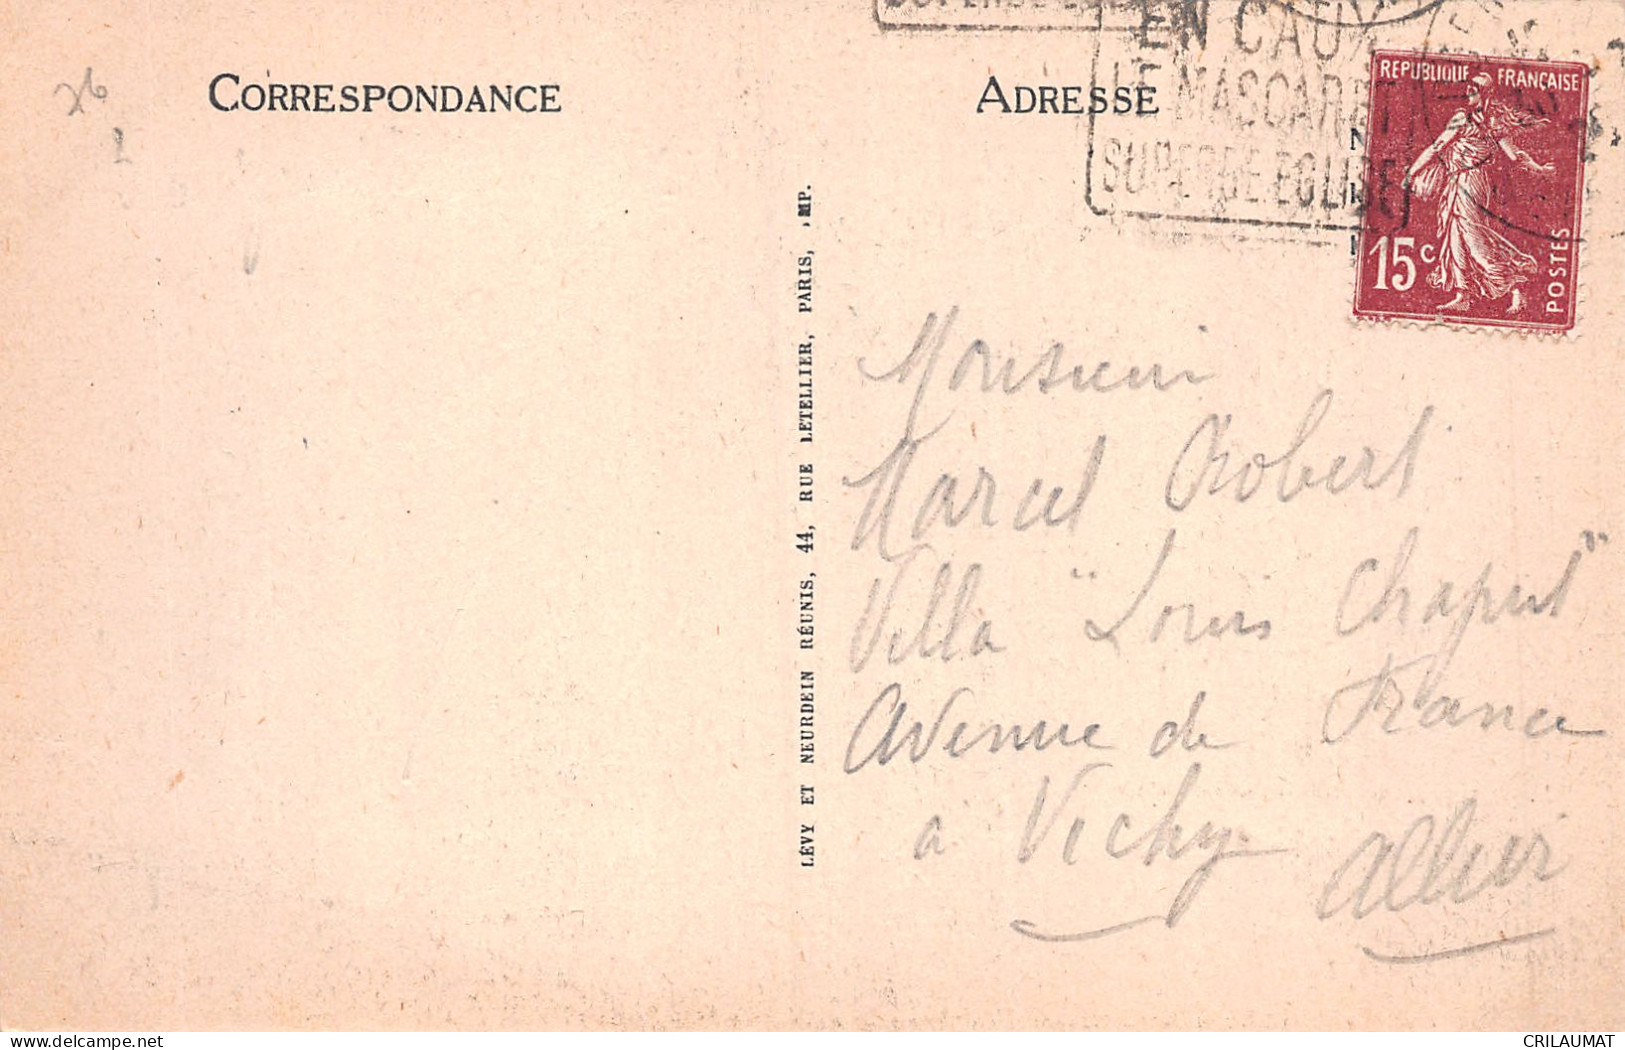 CORRESPONDANCE
ADRESSE
EN CAUX
LE MASCARET
SUPERBE EGLISE
REPUBLIQUE FRANÇAISE
15c
POSTES
26
Monsieur
Marcel Robert
Villa "Louis Chapust"
Avenue de France
à Vichy
Allier
LÉVY ET NEURDEIN RÉUNIS, 44, RUE LETELLIER, PARIS, IMP.
delcampe.net
CRILAUMAT